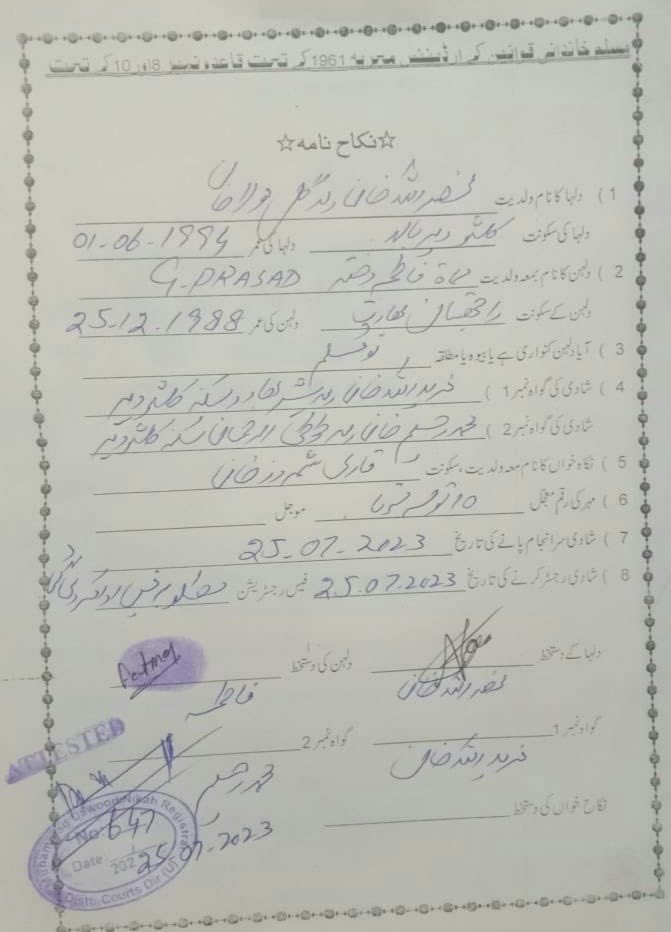 مسلم خاندانی قوانین کے ارڈیننس مجریہ 1961 کے تحت قاعدہ نمبر 8 اور 10 کے تحت
☆نکاح نامہ☆
1 ) دلہا کا نام ولدیت نصراللہ خان ولد گل مولا خان
دلہا کی سکونت دیر بالا دلہا کی عمر 01-06-1994
2 ) دلہن کا نام بمعہ ولدیت فاطمہ دختر G.PRASAD
دلہن کے سکونت راجھستان بھارت دلہن کی عمر 25.12.1988
3 ) آیا دلہن کنواری ہے یا بیوہ یا مطلقہ نو مسلم
4 ) شادی کی گواہ نمبر 1 ) فریداللہ خان ولد سکنہ دیر
شادی کی گواہ نمبر 2 ) محمد رحیم خان ولد سکنہ دیر
5 ) نکاح خواں کا نام معہ ولدیت، سکونت قاری شمروز خان
6 ) مہر کی رقم معجل 10 تولہ موجل
7 ) شادی سرانجام پانے کی تاریخ 25-07-2023
8 ) شادی رجسٹر کرنے کی تاریخ 25.07.2023 فیس رجسٹریشن فیس
دلہا کے دستخط دلہن کی دستخط Fatima
نصراللہ خان فاطمہ
گواہ نمبر 1 گواہ نمبر 2
فریداللہ خان محمد رحیم
نکاح خواں کی دستخط
ATTESTED
Muhammad Dawood Nikah Registrar
No: 647
Date: 202
25.07.2023
Distt: Courts Dir (U)